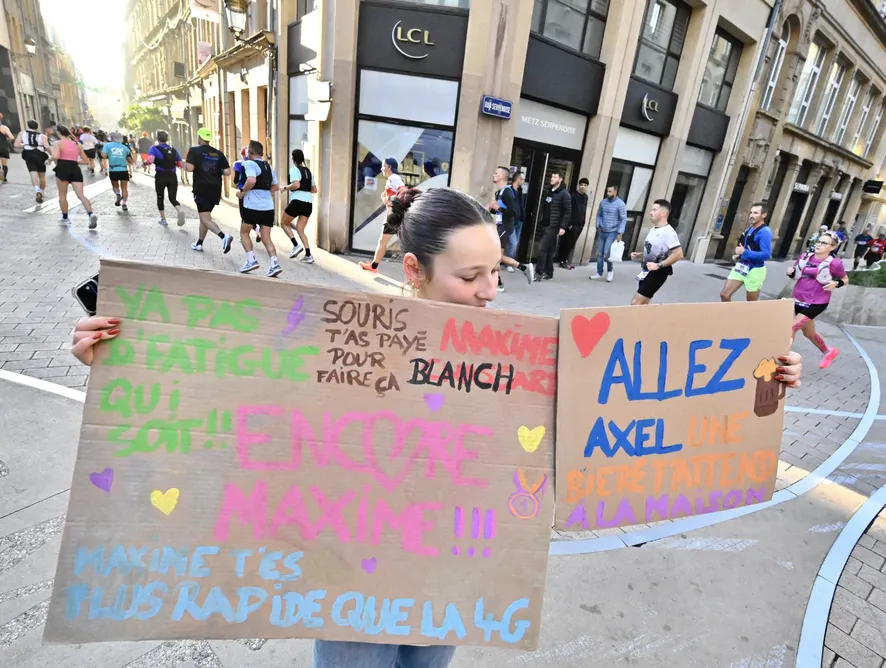 LCL
RUE SERPENOISE
METZ SERPENOISE
LCL
YA PAS
D'FATIGUE
QUI
SOIT!!
SOURIS
T'AS PAYÉ
POUR
FAIRE ÇA
MAXIME
BLANCH
ENCORE
MAXIME !!!
1
MAXIME T'ES
PLUS RAPIDE QUE LA 4G
ALLEZ
AXEL UNE
BIÈRE T'ATTEND
À LA MAISON